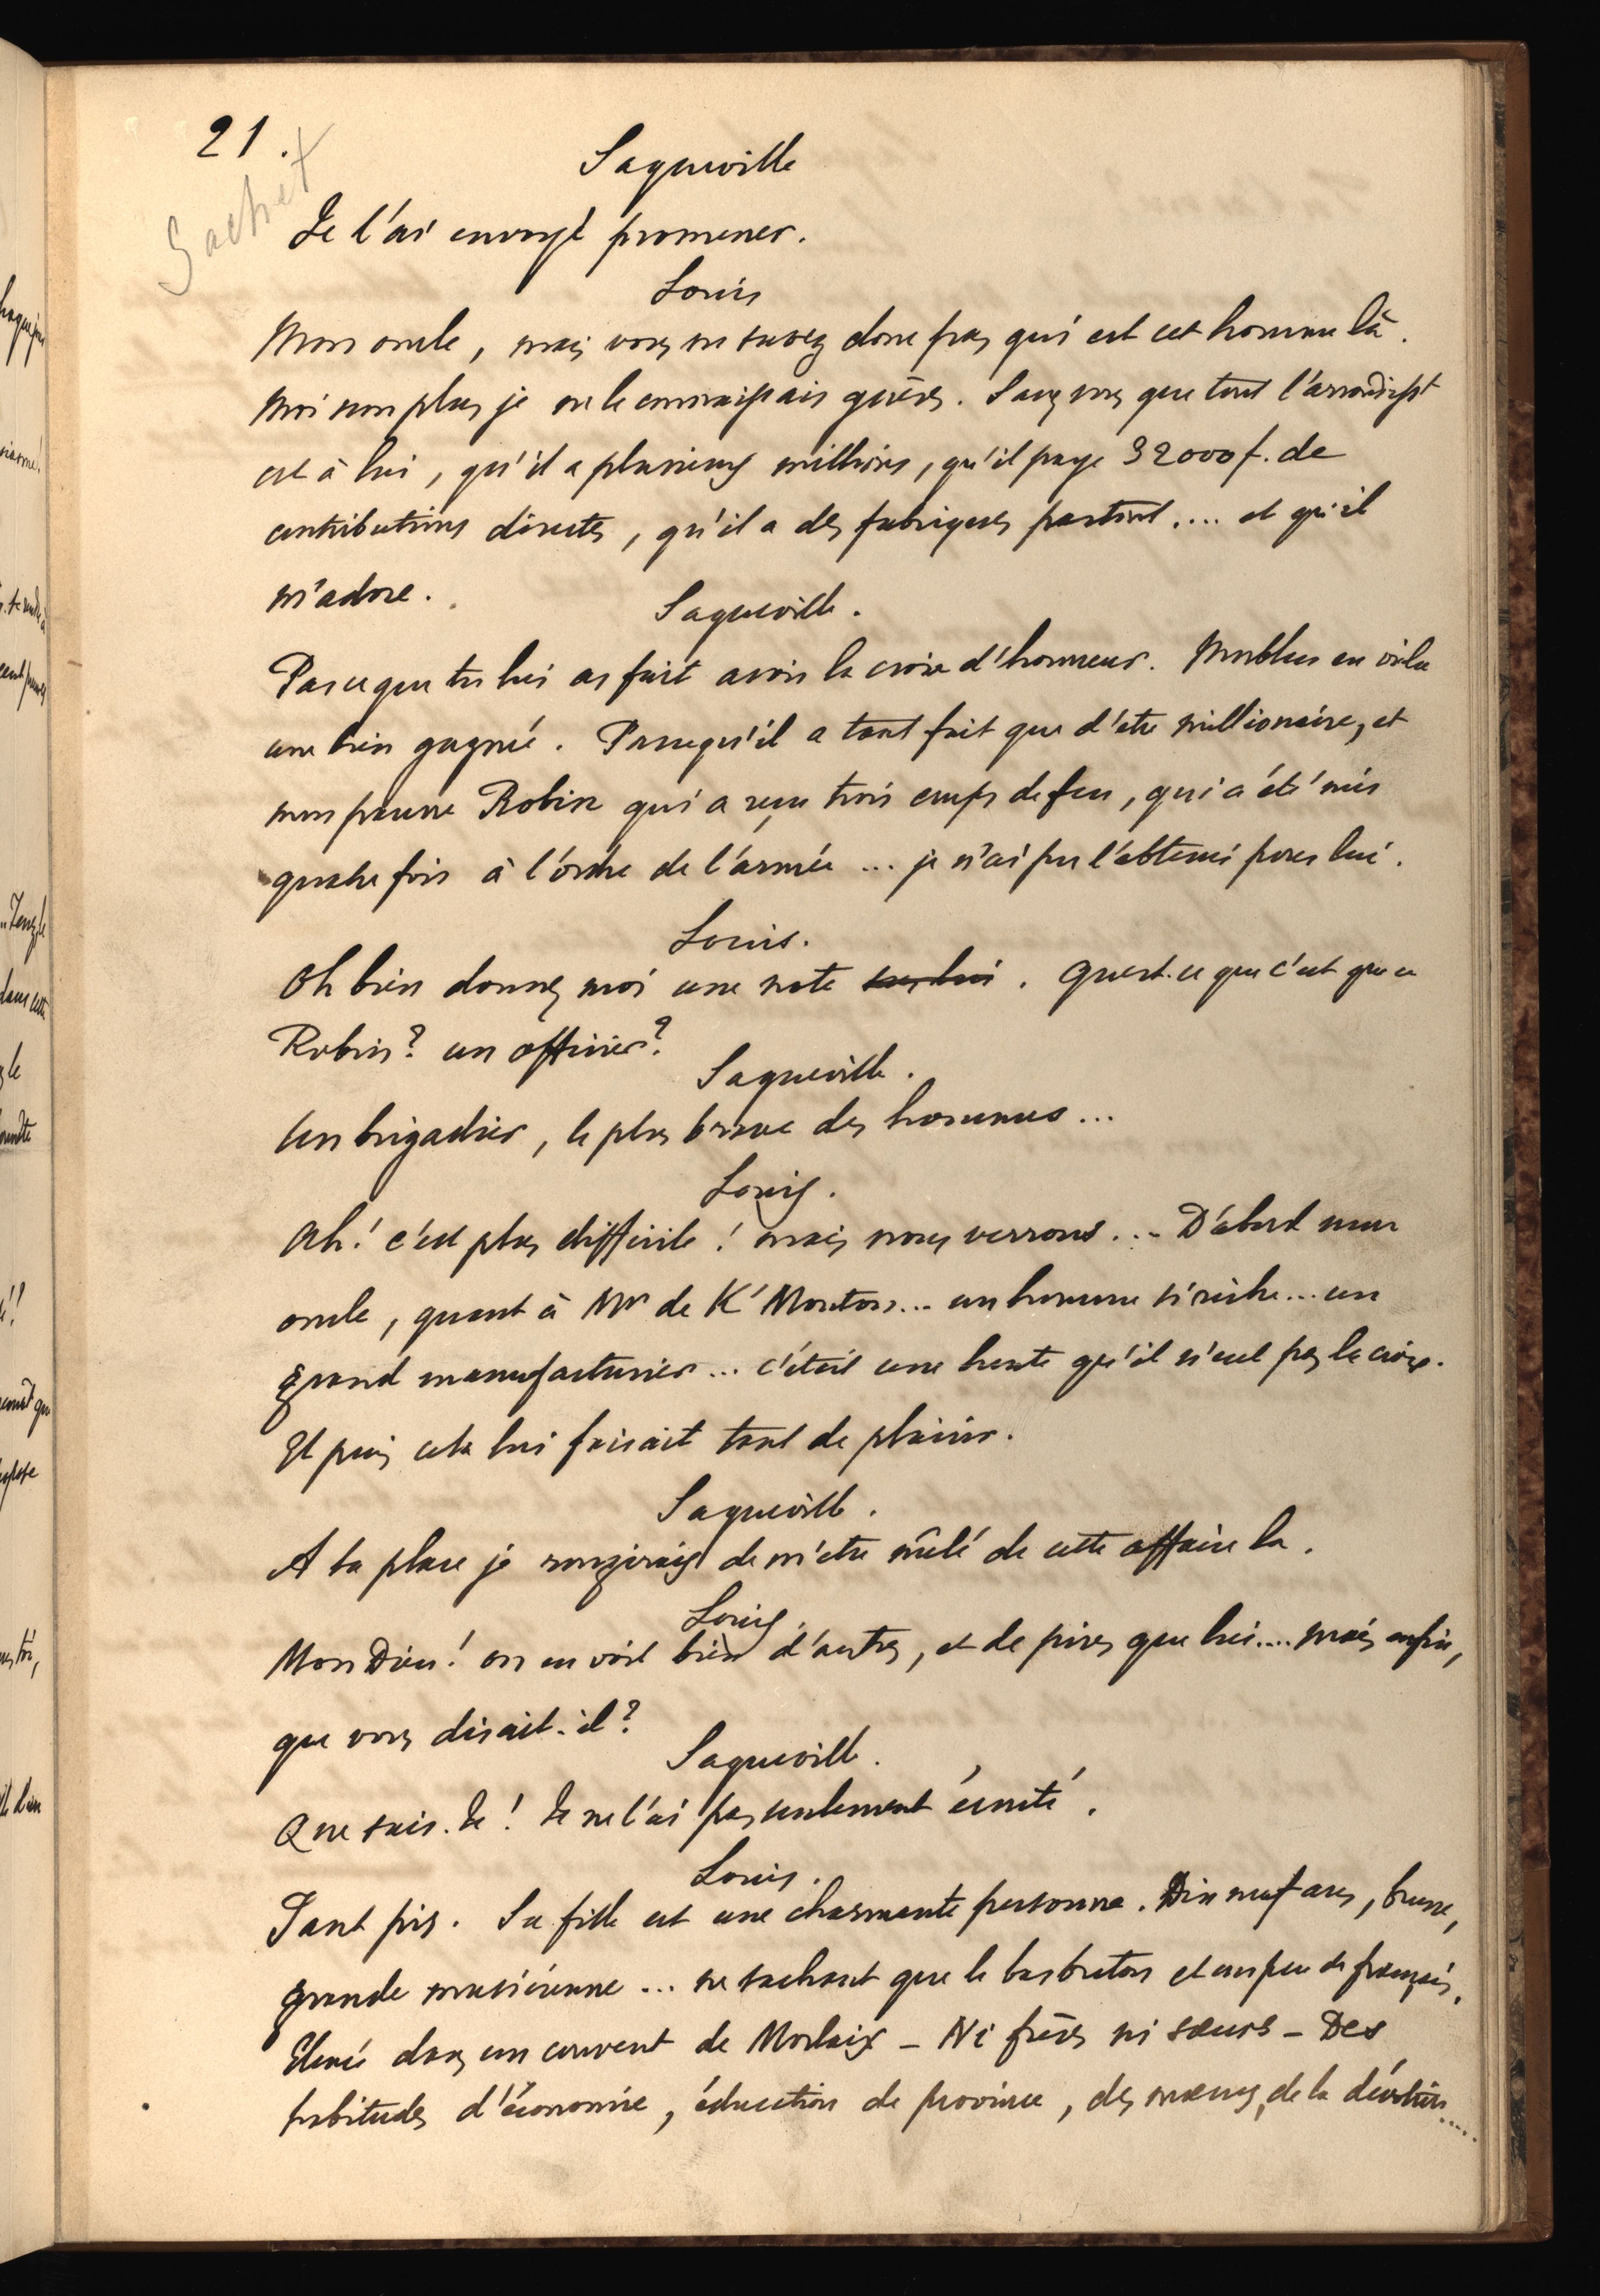 21.
Sachet
Saqueville
Je l'ai envoyé promener.
Louis
Mon oncle, mais vous ne savez donc pas qui est cet homme là.
Moi non plus je ne le connaissais guères. Savez vous que tout l'arrondisst
est à lui, qu'il a plusieurs millions, qu'il paye 32000 f. de
contributions directes, qu'il a des fabriques partout .... et qu'il
m'adore.
Saqueville.
Parceque tu lui as fait avoir la croix d'honneur. Morbleu en voila
une bien gagnée. Parcequ'il a tant fait que d'etre millionaire, et
mon pauvre Robin qui a reçu trois coups de feu, qui a été mis
quatre fois à l'ordre de l'armée ... je n'ai pu l'obtenir pour lui.
Louis.
Oh bien donnez moi une note sur lui. Qu'est-ce que c'est que ce
Robin? un officier?
Saqueville.
Un brigadier, le plus brave des hommes ...
Louis.
Ah! c'est plus difficile! mais nous verrons ... D'abord mon
oncle, quant à Mr de K'Mouton ... un homme si riche ... un
grand manufacturier ... c'était une honte qu'il n'eut pas la croix.
Et puis cela lui faisait tant de plaisir.
Saqueville.
A ta place je rougirais de m'etre mêlé de cette affaire la.
Louis.
Mon Dieu! on en voit bien d'autres, et de pires que lui .... mais enfin,
que vous disait-il?
Saqueville.
Que sais-Je! Je ne l'ai pas seulement écouté.
Louis.
Tant pis. Sa fille est une charmante personne. Dix neuf ans, brune,
grande musicienne ... ne sachant que le bas breton et un peu de français.
Elevée dans un couvent de Morlaix – Ni frères ni sœurs – Des
habitudes d'économie, éducation de province, des mœurs, de la dévotion .....